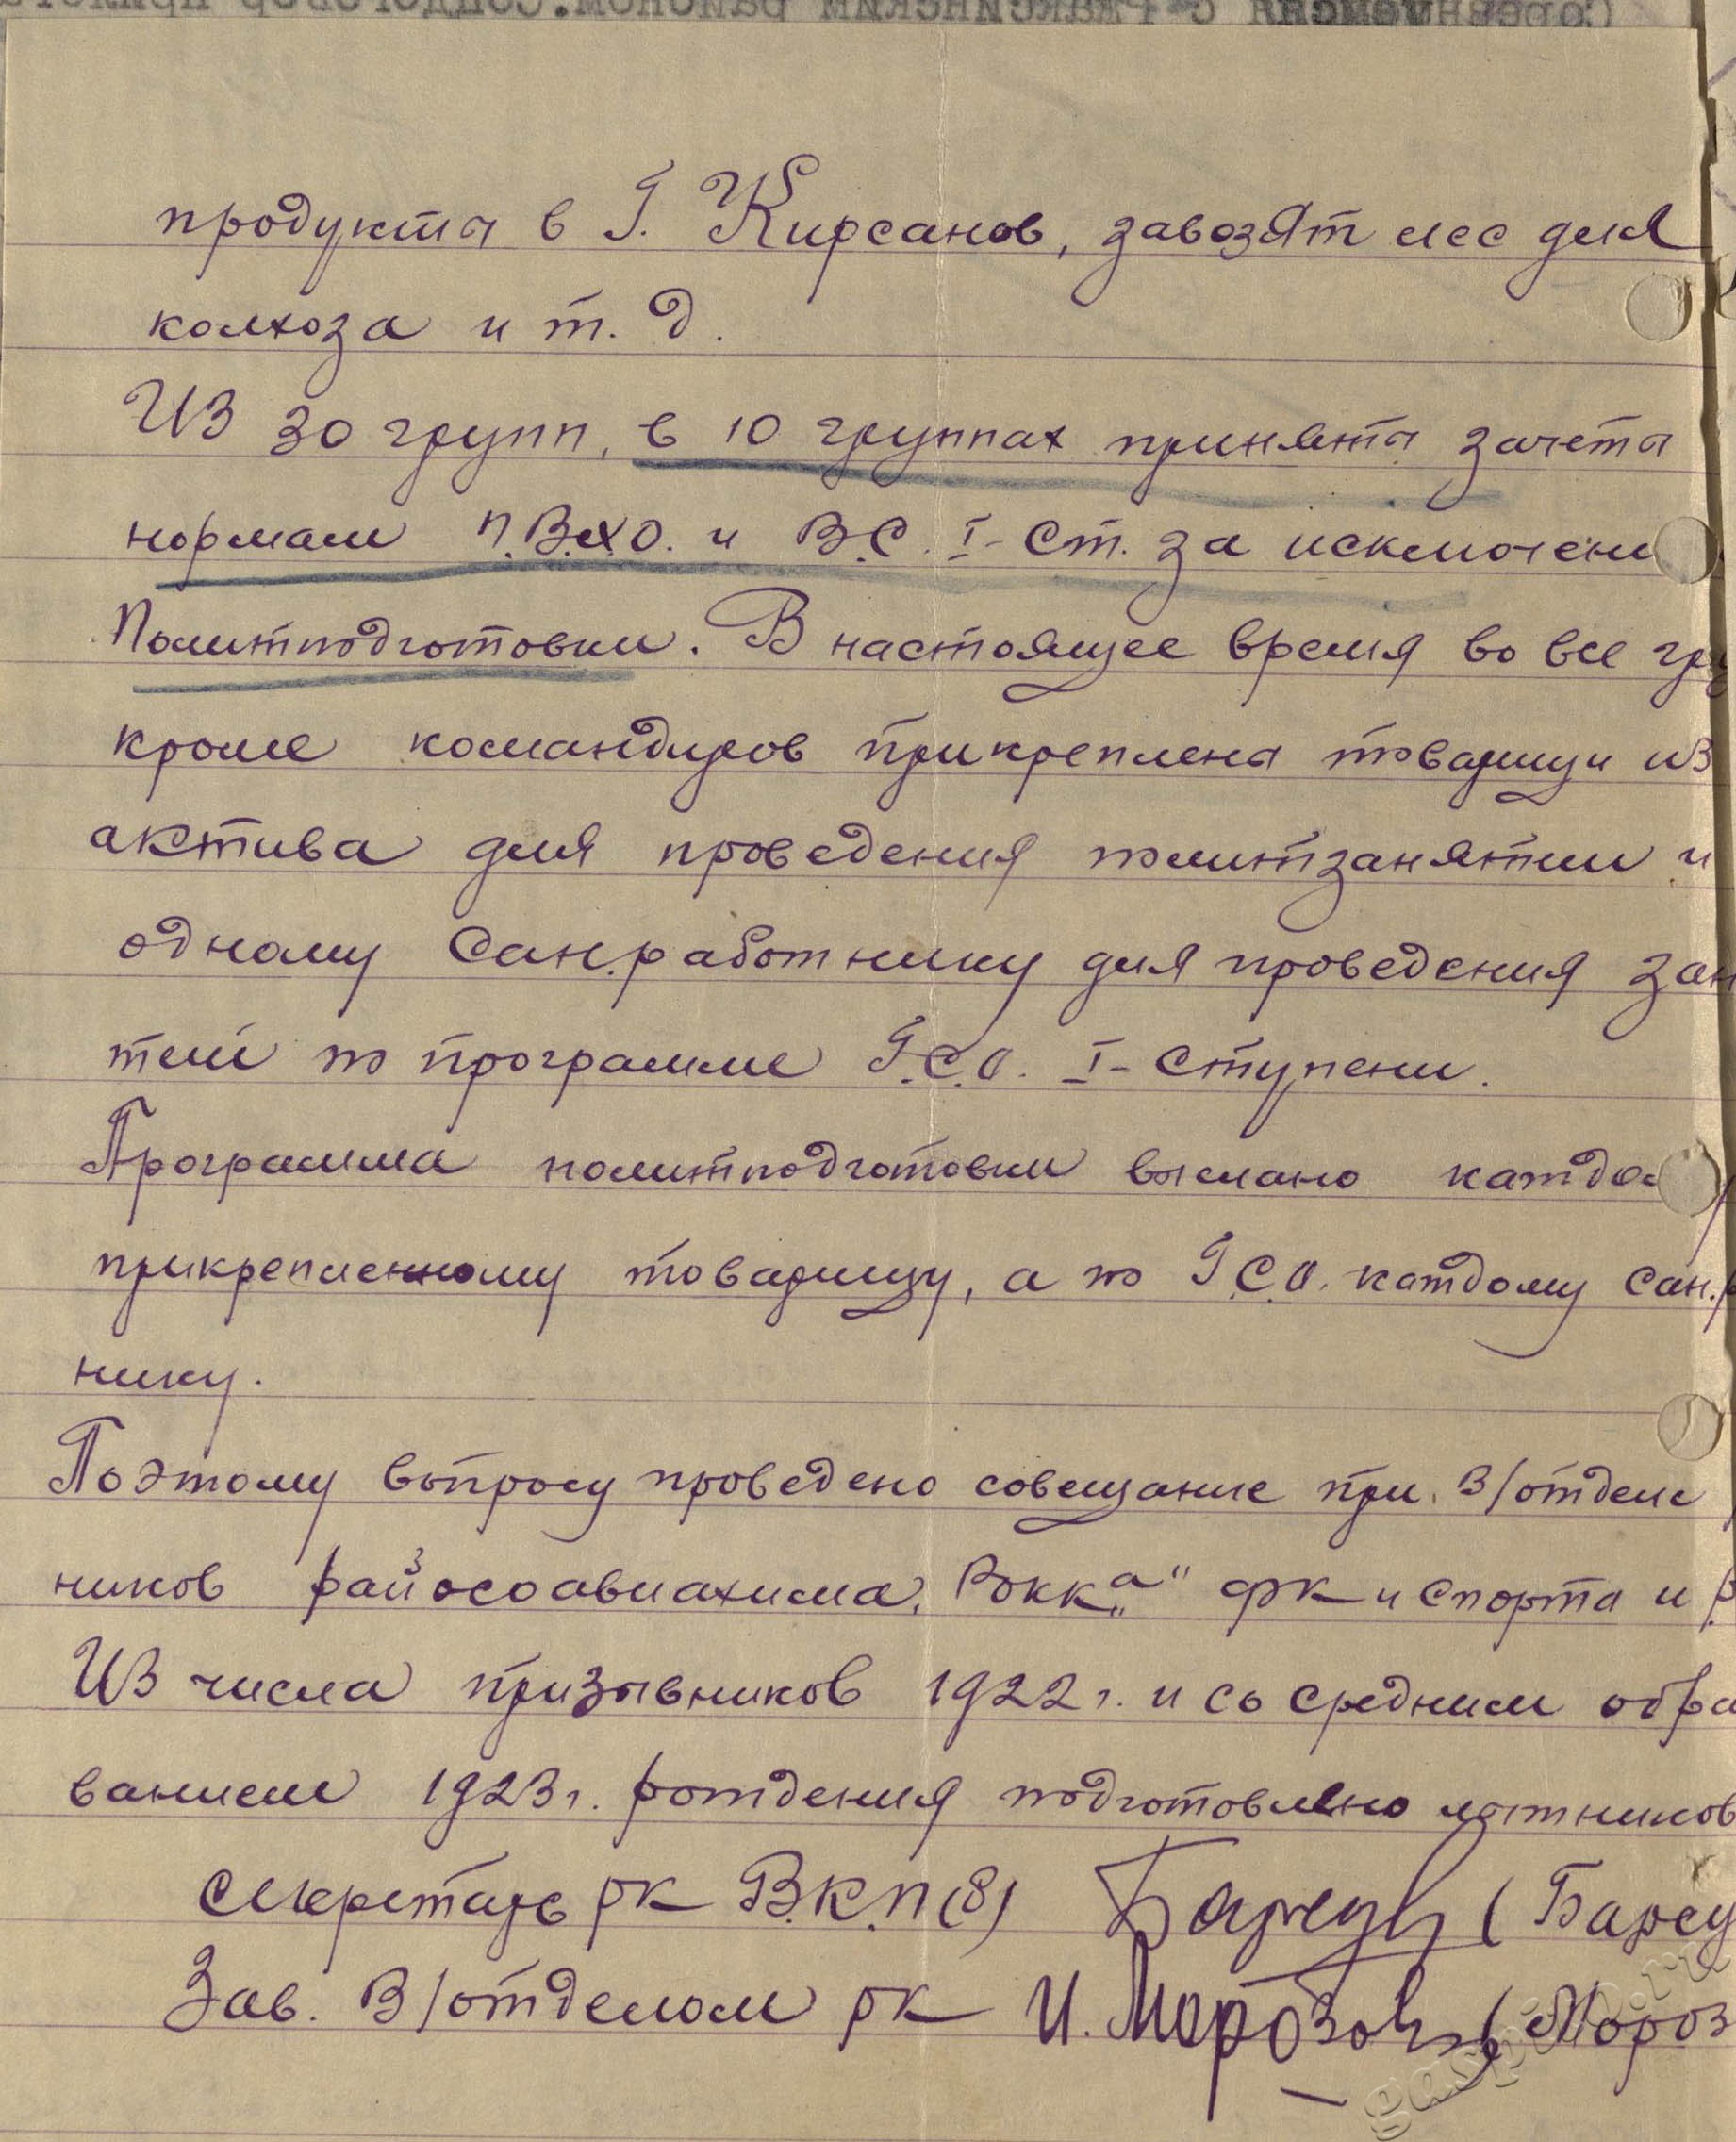 соревнования с Ржаксинским районом.соцдоговор
продукты в г. Кирсанов, завозят лес для
колхоза и т. д.
Из 30 групп, в 10 группах приняты зачеты
нормам П.В.Х.О. и В.С. I-ст. за исключени
Политподготовки. В настоящее время во все гру
кроме командиров прикрепленны товарищи из
актива для проведения политзанятии и
одному сан.работнику для проведения заня
тей по программе Г.С.О. I-ступени.
Программа политподготовки выслано каждо
прикрепленному товарищу, а по Г.С.О. каждому сан.р
нику.
Поэтому вопросу проведено совещание при В/отделе
ников райосоавиахима, Рокк"а" ФК и спорта и
Из числа призывников 1922 г. и со средним обра
ванием 1923 г. рождения подготовлено лыжников
Секретарь РК В.К.П(б) Барсу (Барсу
Зав. В/отделом РК И. Морозов (Мороз